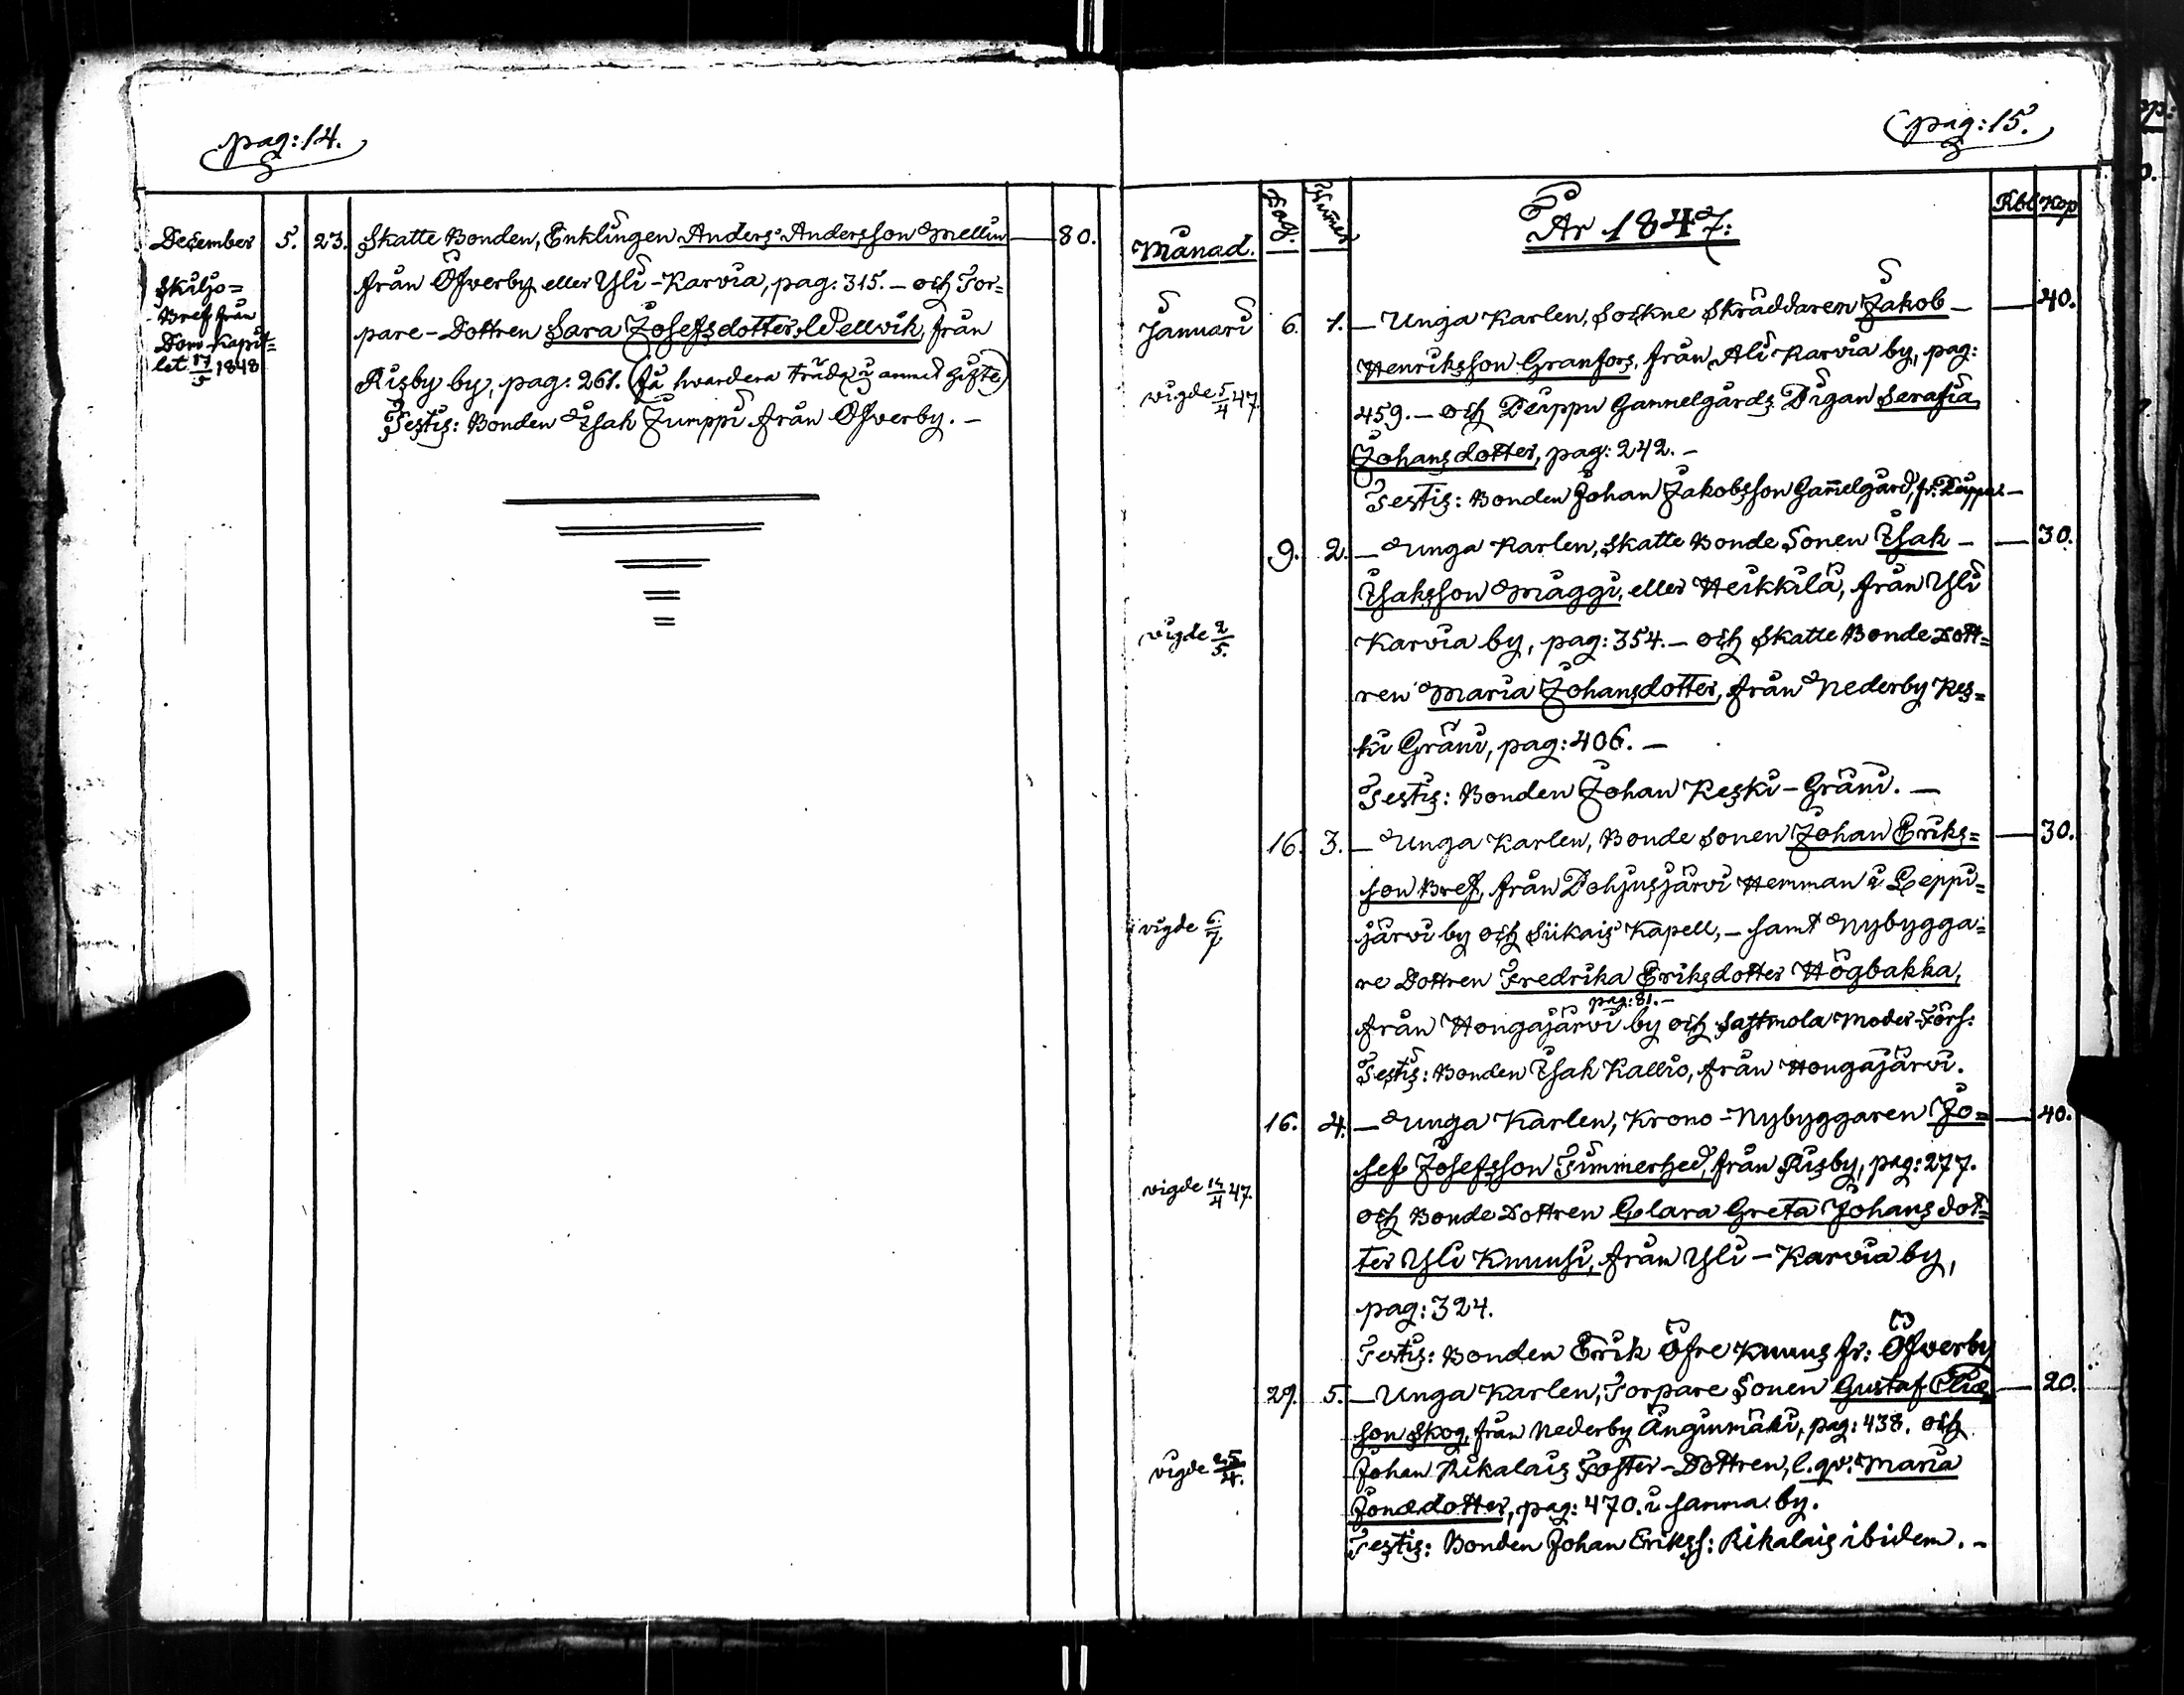 pag: 14.
December 5. 23. Skatte Bonden, Enklingen Anders Andersson Mellin — 80.
från Öfverby eller Yli-Karvia, pag: 315. – och Tor=
pare-Dottren Sara Josefsdotter Wellvik, från
Risby by, pag: 261. (få hvardera träda i annat gifte)
Testis: Bonden Isak Jumppi från Öfverby. –
Skiljo=
Bref från
Dom-Kapit=
let 17/5 1848
pag: 15.
Månad. Dag. Numer År 1847: Rbl Kop
Januari 6. 1. — Unga Karlen, Sockne Skräddaren Jakob — 40.
Henriksson Granfors, från Ali Karvia by, pag:
vigde 5/4 47. 459. – och Peippu Gammelgårds Pigan Serafia
Johansdotter, pag: 242. –
Testis: Bonden Johan Jakobsson Gam̄elgård, fr: Peippu –
9. 2. — Unga Karlen, Skatte Bonde Sonen Isak — 30.
Isaksson Mäggi, eller Heikkilä, från Yli
vigde 2/5. Karvia by, pag: 354. – och Skatte Bonde Dott=
ren Maria Johansdotter, från Nederby Kes=
ki Gräni, pag: 406. —
Testis: Bonden Johan Keski-Gräni. —
16. 3. — Unga Karlen, Bonde Sonen Johan Eriks= — 30.
son Bref, från Pohjusjärvi Hemman i Leppi=
vigde 6/7. järvi by och Siikais Kapell, – samt Nybygga=
re Dottren Fredrika Eriksdotter Högbakka,
pag: 81. –
från Hongajärvi by och Sastmola Moder-Förs:
Testis: Bonden Isak Kallio, från Hongajärvi.
16. 4. — Unga Karlen, Krono-Nybyggaren Jo= — 40.
sef Josefsson Timmerhed, från Risby, pag: 277.
vigde 14/4 47. och Bonde Dottren Clara Greta Johansdot=
ter Yli Knuusi, från Yli-Karvia by,
pag: 324.
Testis: Bonden Erik Öfre Knuus fr: Öfverby
29. 5. — Unga Karlen, Torpare Sonen Gustaf Eliæ — 20.
son Skog, från Nederby Änginmäki, pag: 438. och
vigde 25/4. Johan Rikalais Foster-Dottren, l. qv: Maria
Jonædotter, pag: 470. i samma by.
Testis: Bonden Johan Erikss: Rikalais ibidem. –